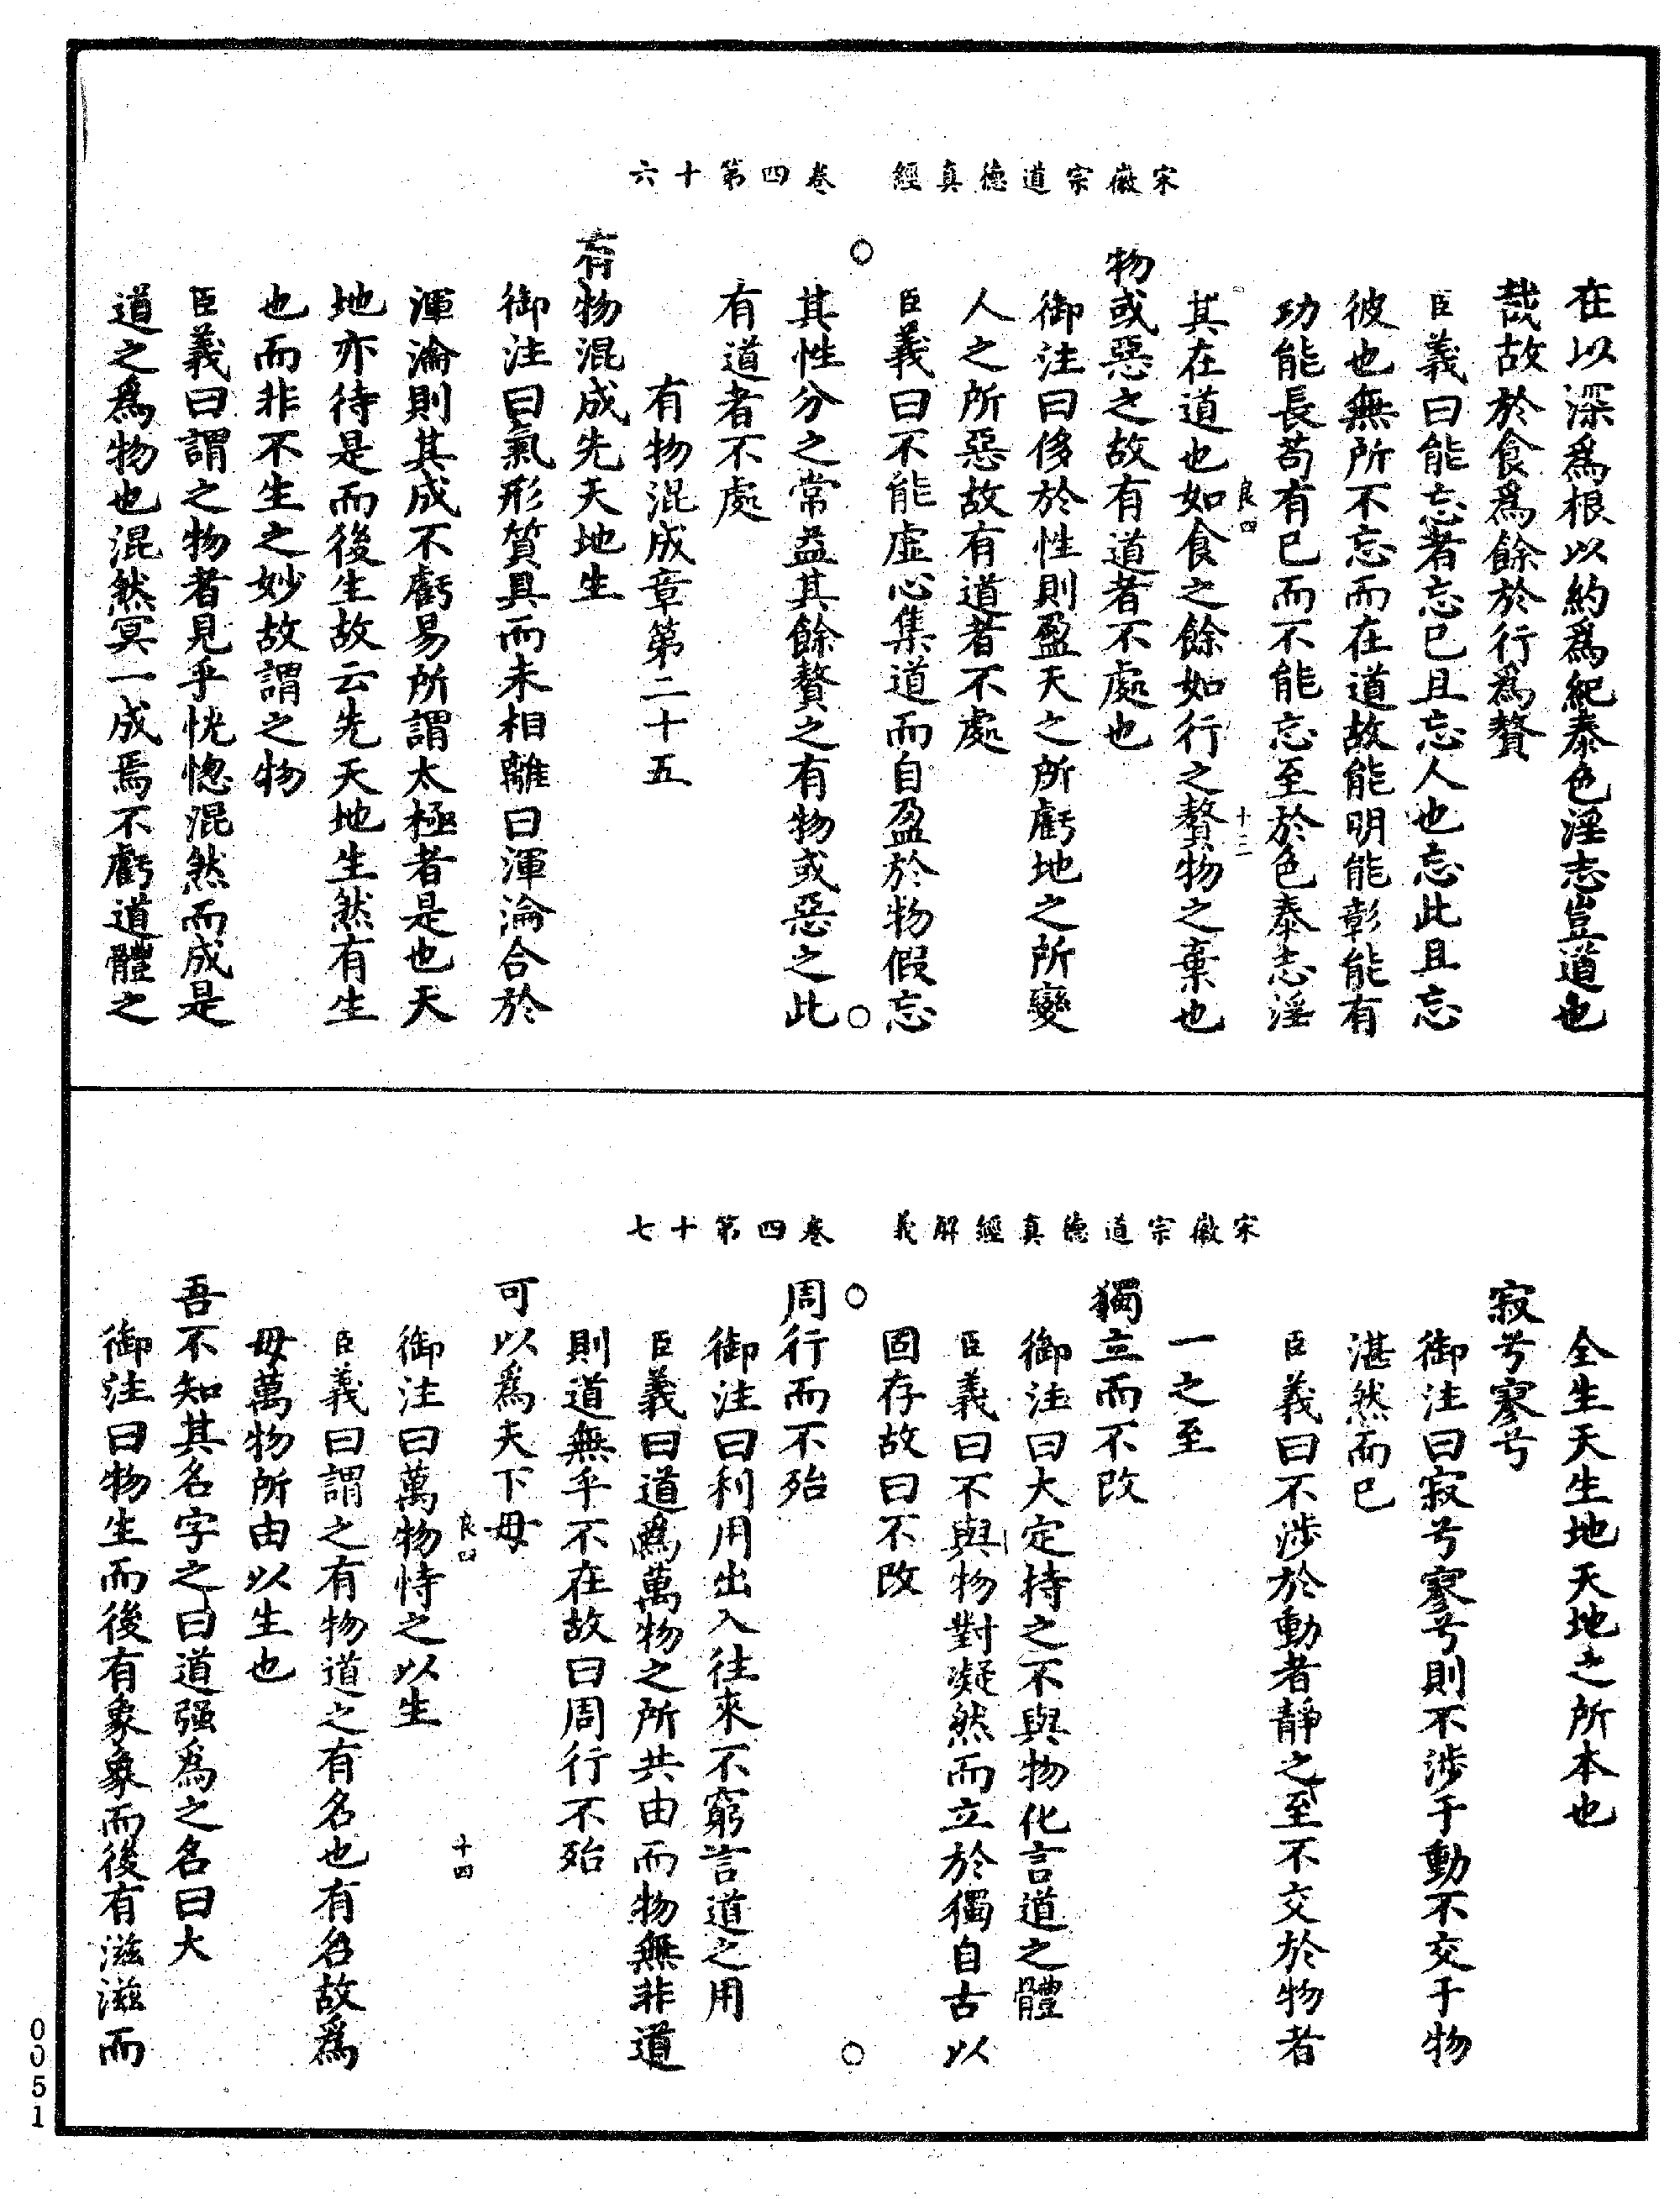 宋徽宗道德真經　卷四第十六
在以深爲根以約爲紀泰色淫志豈道也
哉故於食爲餘於行爲贅
臣義曰能忘者忘已且忘人也忘此且忘
彼也無所不忘而在道故能明能彰能有
功能長苟有已而不能忘至於色泰志淫
良四　十三
其在道也如食之餘如行之贅物之棄也
物或惡之故有道者不處也
御注曰侈於性則盈天之所虧地之所變
人之所惡故有道者不處
臣義曰不能虛心集道而自盈於物假忘
其性分之常益其餘贅之有物或惡之此
有道者不處
有物混成章第二十五
有物混成先天地生
御注曰氣形質具而未相離曰渾淪合於
渾淪則其成不虧易所謂太極者是也天
地亦待是而後生故云先天地生然有生
也而非不生之妙故謂之物
臣義曰謂之物者見乎恍惚混然而成是
道之爲物也混然冥一成焉不虧道體之
宋徽宗道德真經解義　卷四第十七
全生天生地天地之所本也
寂兮寥兮
御注曰寂兮寥兮則不涉于動不交于物
湛然而已
臣義曰不涉於動者靜之至不交於物者
一之至
獨立而不改
御注曰大定持之不與物化言道之體
臣義曰不與物對凝然而立於獨自古以
固存故曰不改
周行而不殆
御注曰利用出入往來不窮言道之用
臣義曰道爲萬物之所共由而物無非道
則道無乎不在故曰周行不殆
可以爲天下母
良四　十四
御注曰萬物恃之以生
臣義曰謂之有物道之有名也有名故爲
母萬物所由以生也
吾不知其名字之曰道强爲之名曰大
御注曰物生而後有象象而後有滋滋而
0051